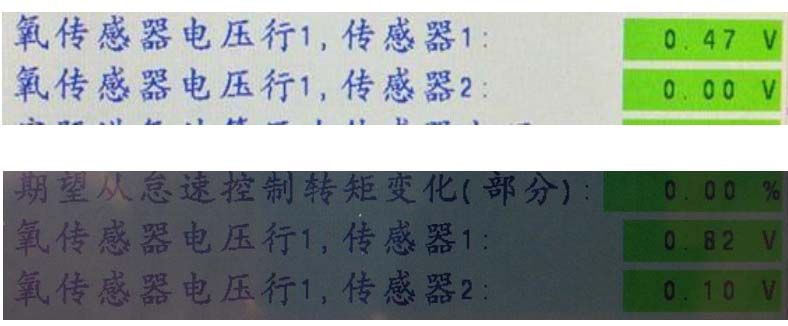 氧传感器电压行1,传感器1: 0.47 V
氧传感器电压行1,传感器2: 0.00 V
期望从怠速控制转矩变化(部分): 0.00 %
氧传感器电压行1,传感器1: 0.82 V
氧传感器电压行1,传感器2: 0.10 V